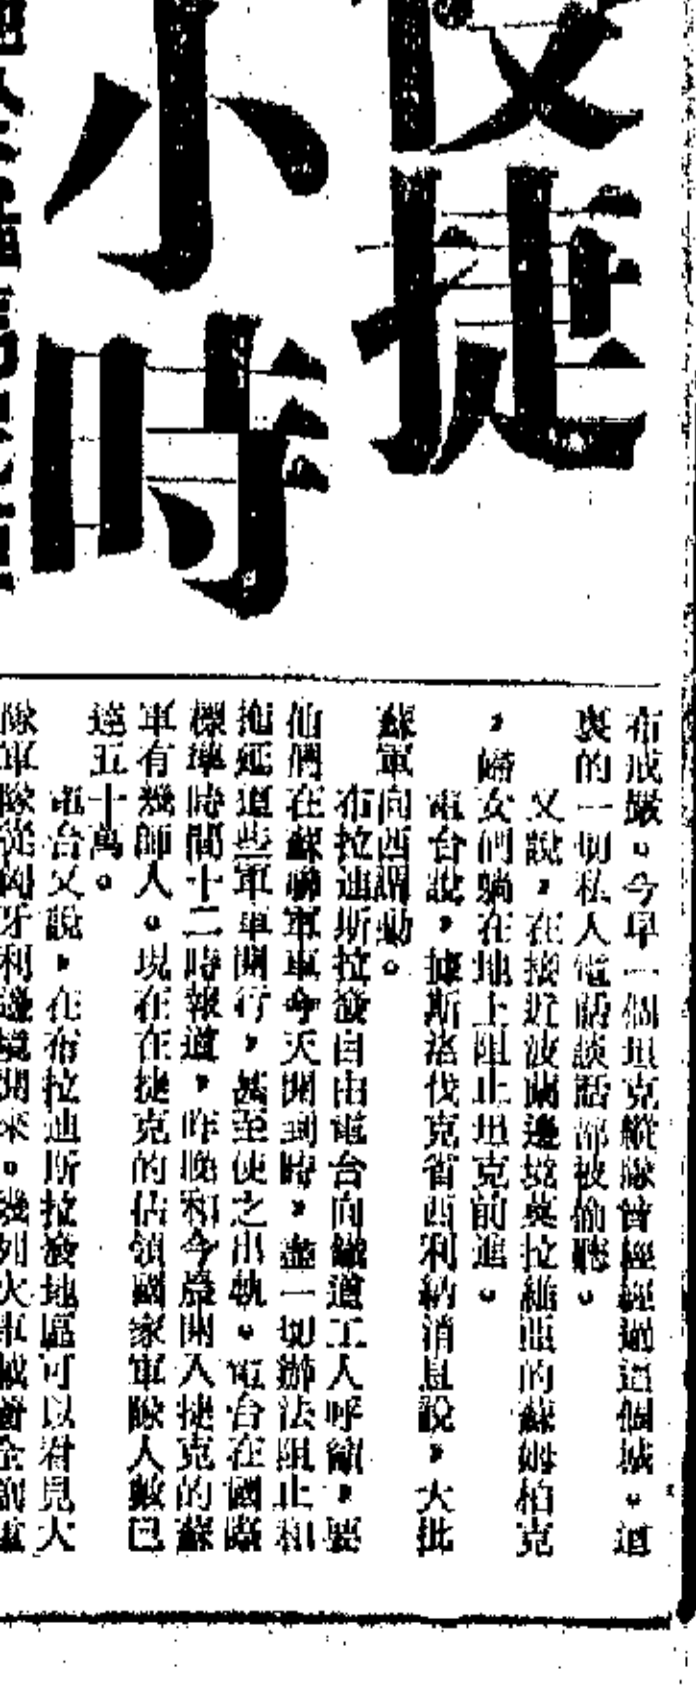 捷
小時
布戒嚴。今早一個坦克縱隊曾經經過這個城。這
裏的一切私人電話談話都被偷聽。
又說，在接近波蘭邊境莫拉維亞的蘇姆柏克
，婦女們躺在地上阻止坦克前進。
電台說，據斯洛伐克省西利納消息說，大批
蘇軍向西調動。
布拉迪斯拉發自由電台向鐵道工人呼籲，要
他們在蘇聯軍車今天開到時，盡一切辦法阻止和
拖延這些軍車開行，甚至使之出軌。電台在國際
標準時間十二時報道，昨晚和今晨開入捷克的蘇
軍有幾師人。現在在捷克的佔領國家軍隊人數已
達五十萬。
電台又說，在布拉迪斯拉發地區可以看見大
隊軍隊從匈牙利邊境開來。幾列火車載着全副